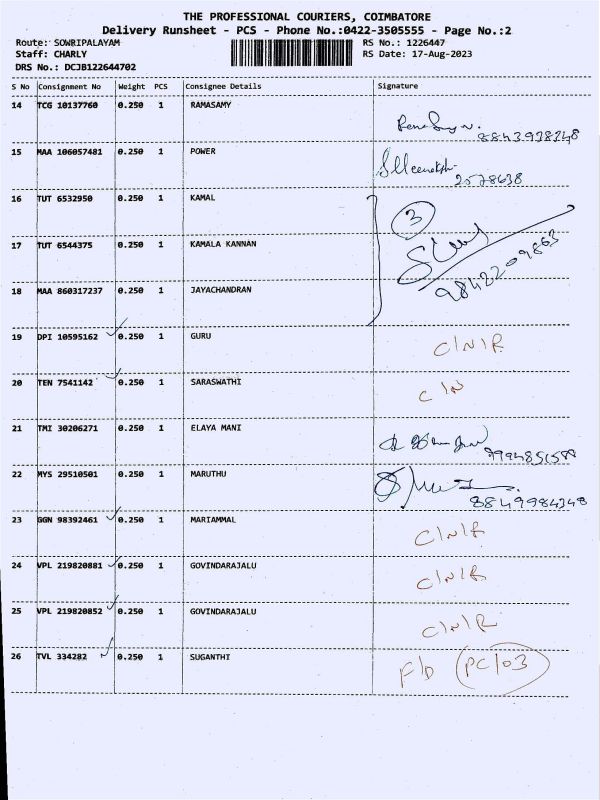 THE PROFESSIONAL COURIERS, COIMBATORE
Delivery Runsheet - PCS - Phone No.:0422-3505555 - Page No.:2
Route: SOWRIPALAYAM RS No.: 1226447
Staff: CHARLY RS Date: 17-Aug-2023
DRS No.: DCJB122644702
S No Consignment No Weight PCS Consignee Details Signature
14 TCG 10137760 0.250 1 RAMASAMY
8843938348
15 MAA 106057481 0.250 1 POWER
2578638
16 TUT 6532950 0.250 1 KAMAL
3
17 TUT 6544375 0.250 1 KAMALA KANNAN
9842209863
18 MAA 860317237 0.250 1 JAYACHANDRAN
19 DPI 10595162 0.250 1 GURU C/N/R
20 TEN 7541142 0.250 1 SARASWATHI C/N
21 TMI 30206271 0.250 1 ELAYA MANI
22 MYS 29510501 0.250 1 MARUTHU
8849984348
23 GGN 98392461 0.250 1 MARIAMMAL C/N/R
24 VPL 219820881 0.250 1 GOVINDARAJALU C/N/R
25 VPL 219820852 0.250 1 GOVINDARAJALU C/N/R
26 TVL 334282 0.250 1 SUGANTHI F/D PC/03